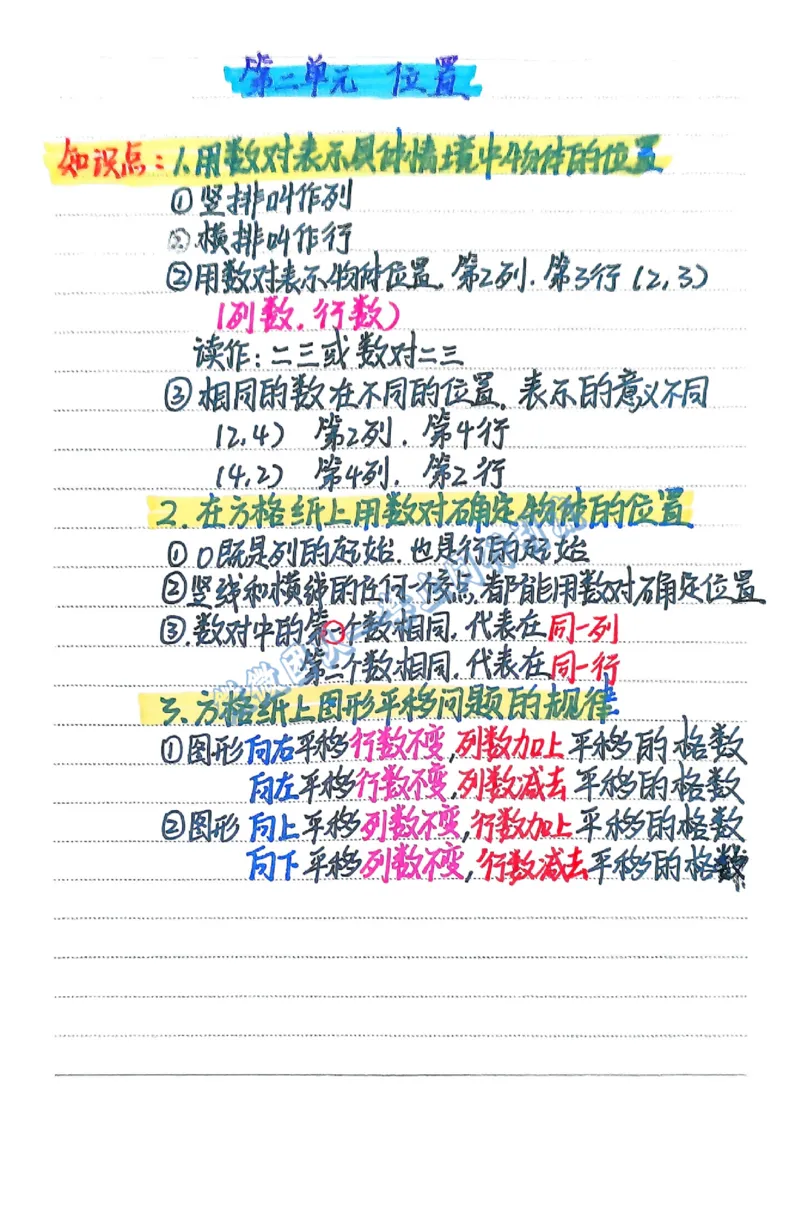 第二单元 位置
知识点：1.用数对表示具体情境中物体的位置
①竖排叫作列
②横排叫作行
②用数对表示物体位置.第2列.第3行(2,3)
(列数,行数)
读作:二三或数对二三
③相同的数在不同的位置,表示的意义不同
(2,4) 第2列.第4行
(4,2) 第4列.第2行
2.在方格纸上用数对确定物体的位置
①0既是列的起始.也是行的起始
②竖线和横线的任何一个交点,都能用数对确定位置
③.数对中的第一个数相同,代表在同一列
第二个数相同.代表在同一行
3.方格纸上图形平移问题的规律
①图形向右平移行数不变,列数加上平移的格数
向左平移行数不变,列数减去平移的格数
②图形向上平移列数不变,行数加上平移的格数
向下平移列数不变,行数减去平移的格数